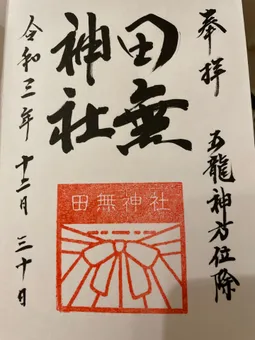 奉拝
五龍神方位除
田無
神社
田無神社
令和三年十二月三十日